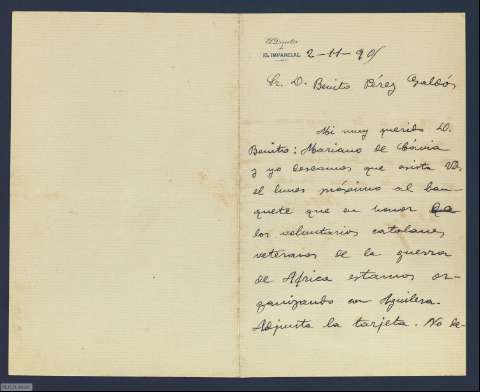 El Director
de
EL IMPARCIAL 2-11-90
Sr. D. Benito Pérez Galdós
Mi muy querido D.
Benito: Mariano de Cávia
y yo deseamos que asista Vd.
el lunes próximo al ban-
quete que en honor
los voluntarios catalanes,
veteranos de la guerra
de Africa estamos or-
ganizando con Aguilera.
Adjunta la tarjeta. No de-